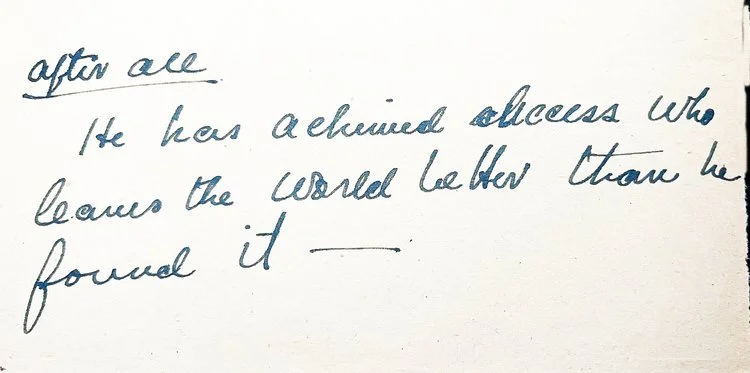 after all
He has achieved success who
leaves the world better than he
found it —